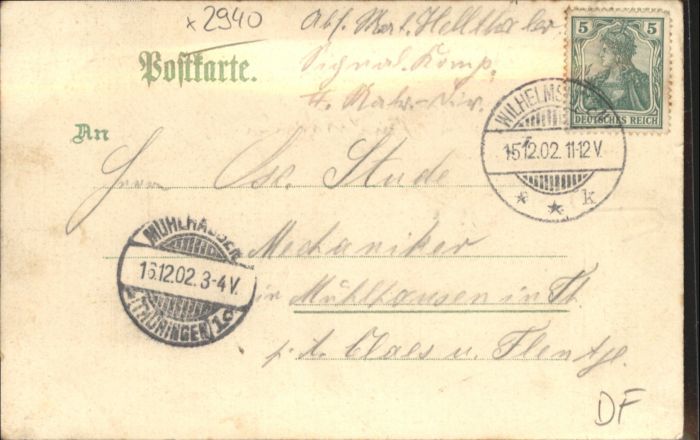 x2940
Abs. Mat. Hellthaler
Signal. Komp.
Postkarte.
5 5
DEUTSCHES REICH
WILHELMS
15.12.02. 11-12 V.
* * k
An
Herrn Osc. Stude
Mechaniker
in Mühlhausen in Th.
p. A. Claes u. Flentje.
MÜHLHAUSEN
16.12.02. 3-4 V.
(THÜRINGEN) 1c
DF